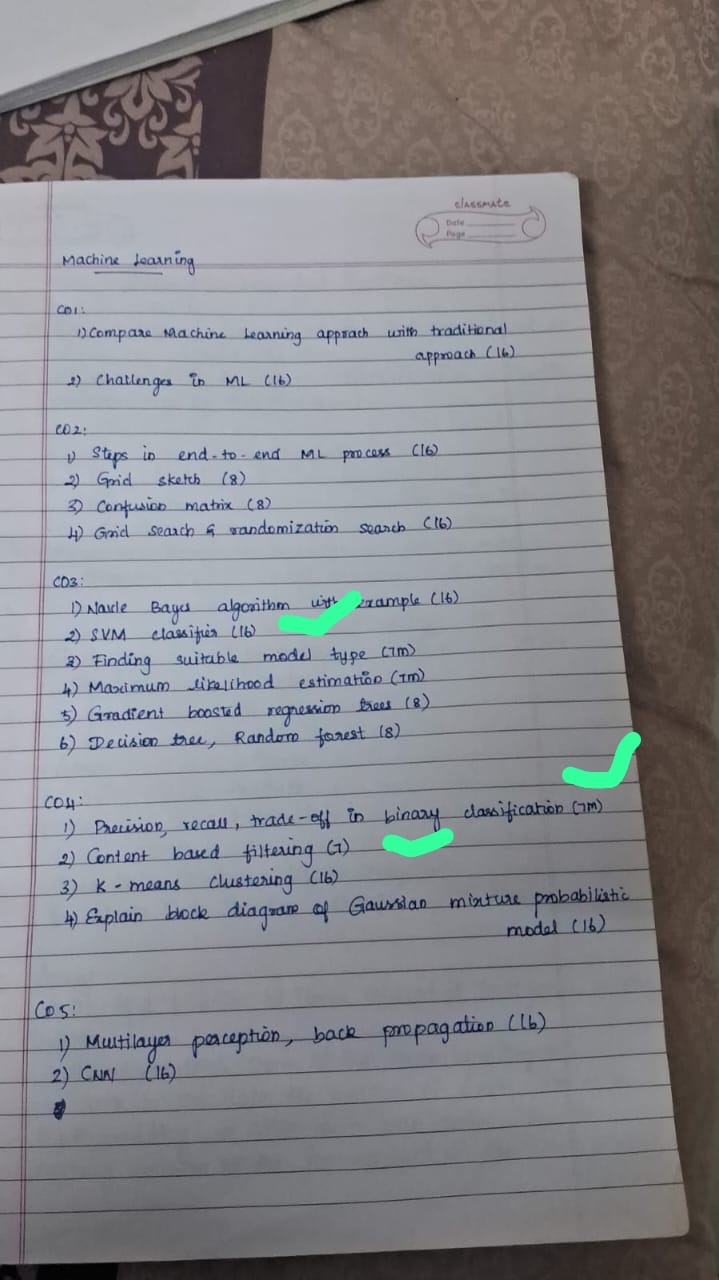 classmate
Date
Page
Machine Learning
CO1:
1) Compare Machine Learning apprach with traditional
approach (16)
2) Challenges in ML (16)
CO2:
1) Steps in end-to-end ML process (16)
2) Grid sketch (8)
3) Confusion matrix (8)
4) Grid search & randomization search (16)
CO3:
1) Navie Bayes algorithm with example (16)
2) SVM classifier (16)
3) Finding suitable model type (7m)
4) Maximum likelihood estimation (7m)
5) Gradient boosted regression trees (8)
6) Decision tree, Random forest (8)
CO4:
1) Precision, recall, trade-off in binary classification (7M)
2) Content based filtering (7)
3) K-means clustering (16)
4) Explain block diagram of Gaussian mixture probabilistic
model (16)
CO5:
1) Multilayer perception, back propagation (16)
2) CNN (16)